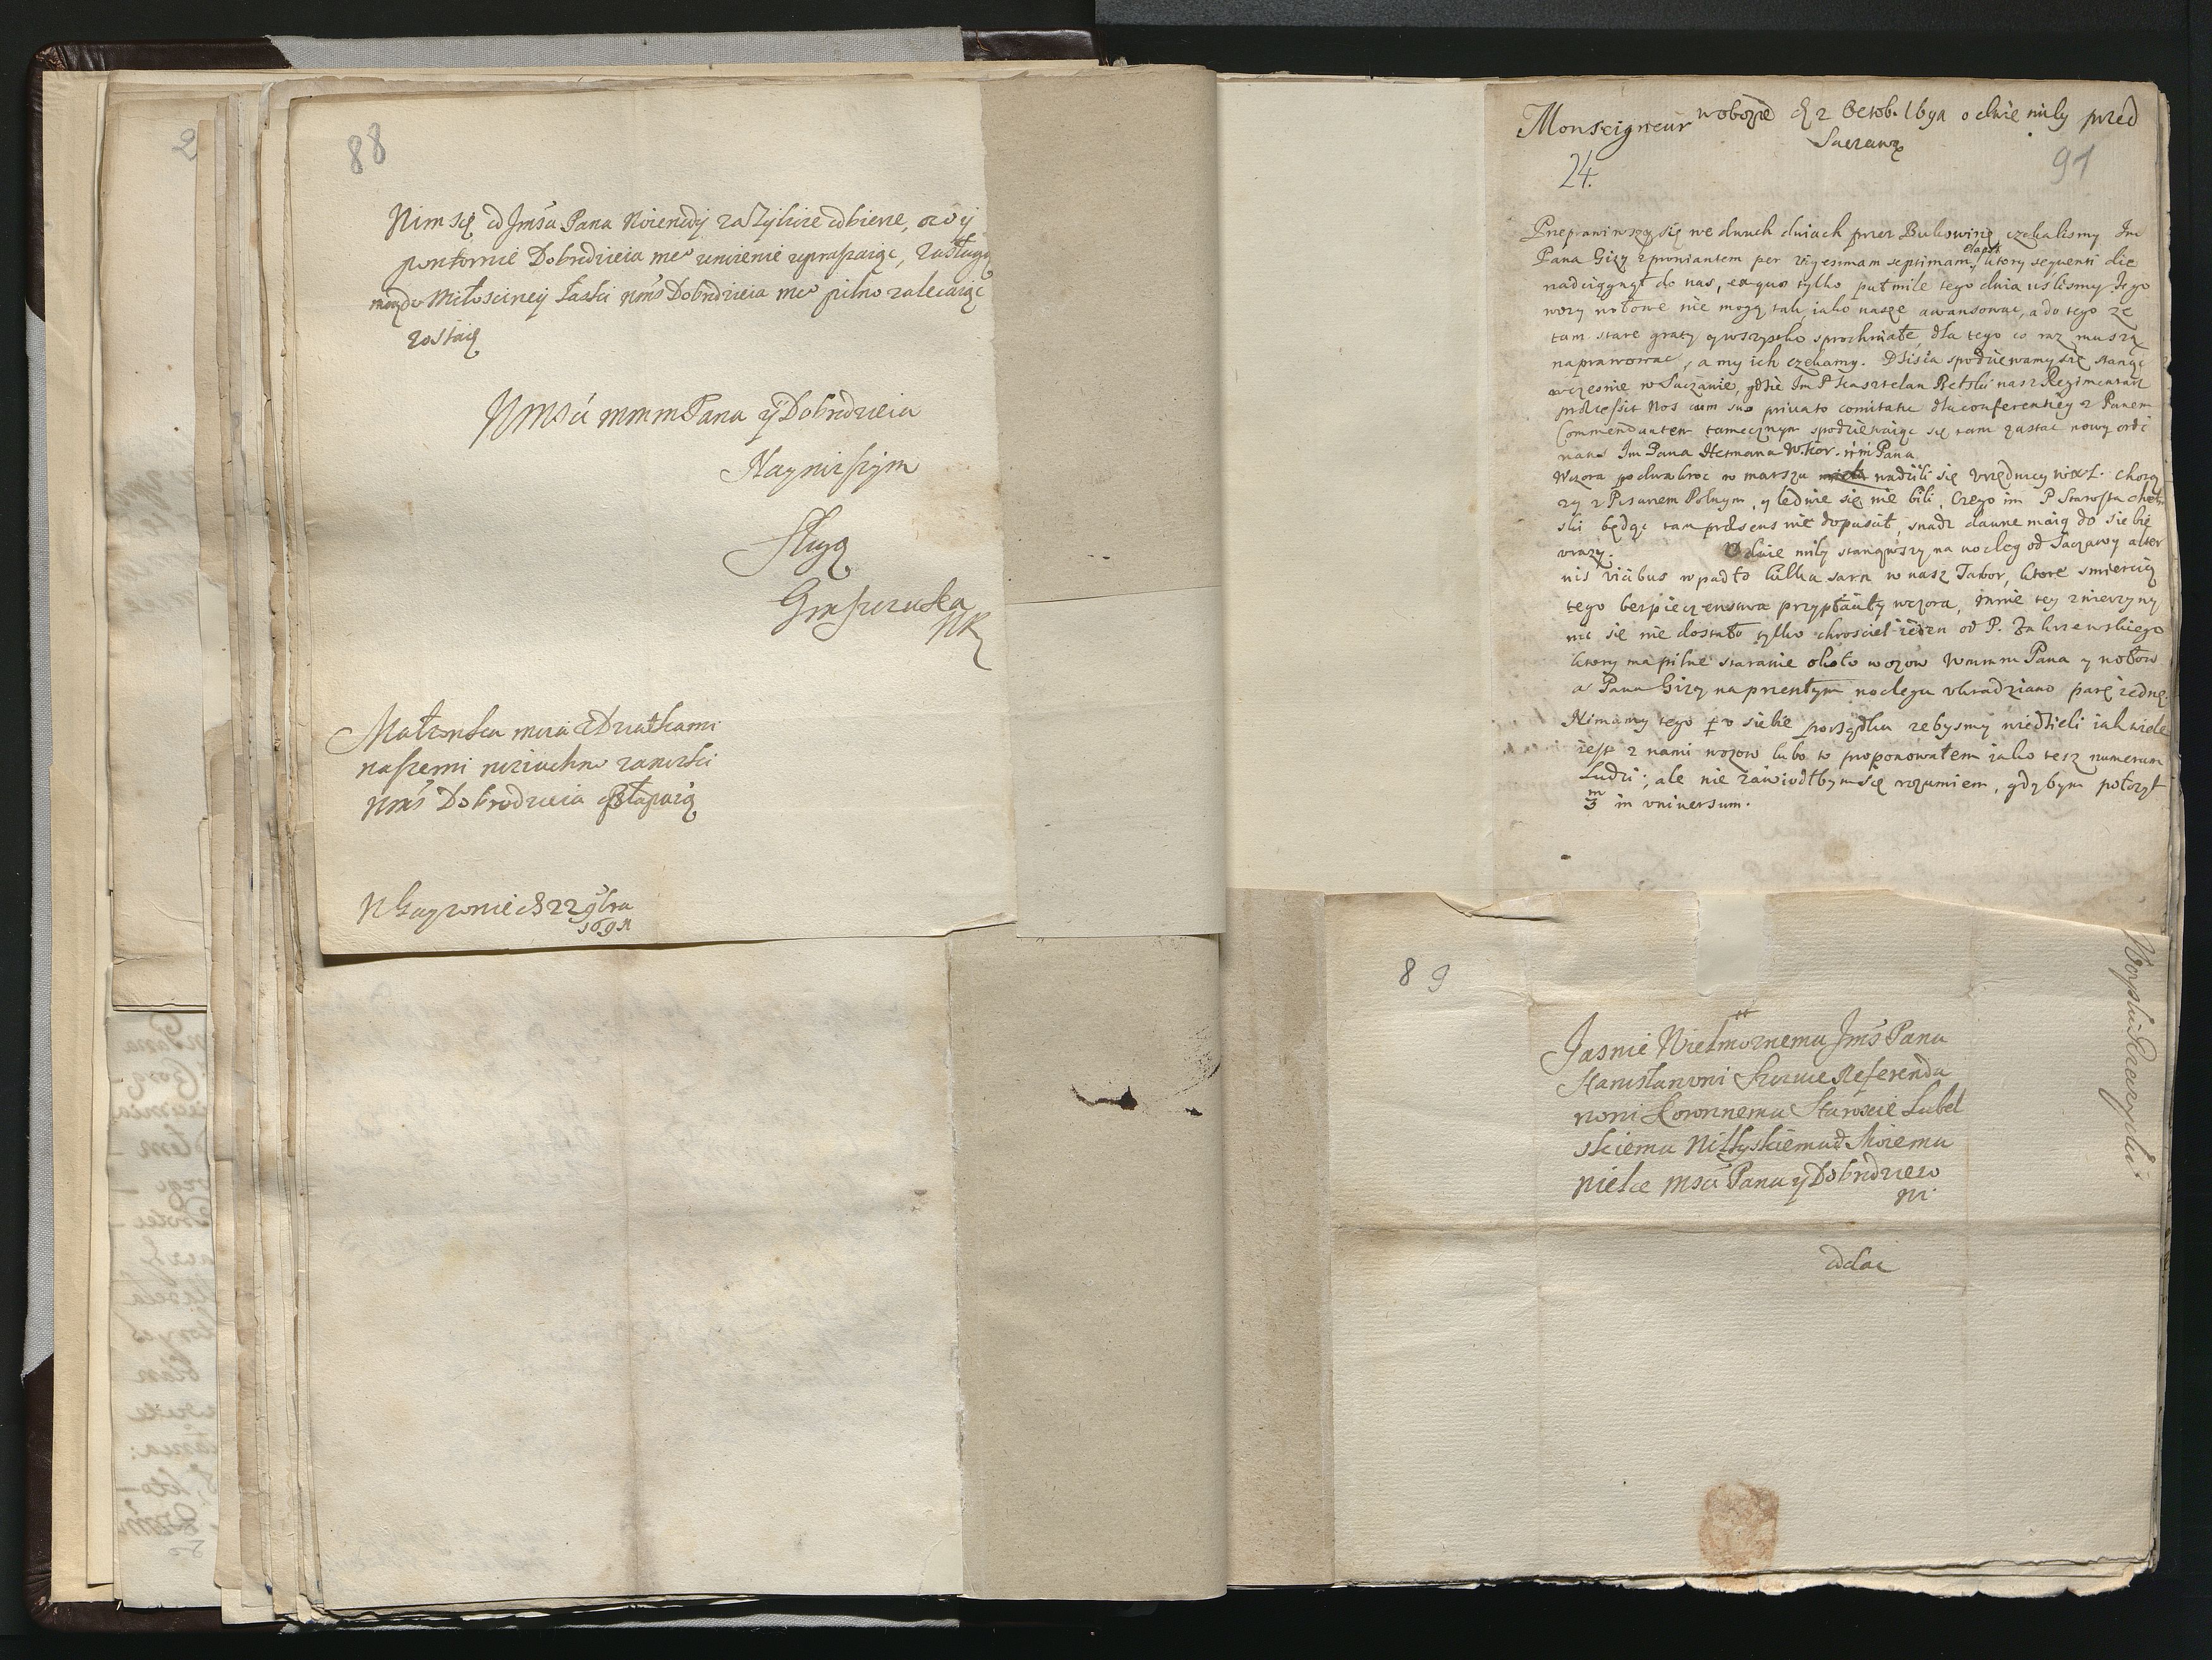 88
Nim się od Jmści Pana Woiewody
powtornie Dobrodzieia me° uproszaiąc, zasługi
moje Miłosciwey Łasce Wmś Dobrodzieia me° pilno zalecaiąc
zostaię
WMści mmm Pana ÿ Dobrodzieia
Nayniszym
Sługą
Małzonka moia z Dziatkami
naszemi
Wmś Dobrodzieia
1691
Monseigneur w obozie d 2 Octob. 1691 o dwie mily przed
Saczawą
24.
91
Przeprawiwszy się we dwuch dniach przez Bukowinę czekalismy Im
Pana Gizy z prowiantem per vigesimam septimam, ktory sequenti die
nadciągnął do nas, ex quo tylko puł mile tego dnia uślismy. Jego
wozy wołowe nie mogą tak, iako nasze awansowac, a do tego ze
tam stare graty y wszystko sprochniałe, dla tego co raz muszą
naprawowac, a my ich czekamy. Dzisia spodziewamy się stanąć
wczesnie w Saczawie, gdzie Im P kasztelan Bełski nasz Regimentarz
præcessit nos cum suo privato comitatu dla conferentiey z Panem
Commendantem tamecznym spodziewaiąc się tam zastac nowy ordi
nans Im Pana Hetmana W. Kor. mm Pana
Wczora po dwa kroc w marszu wadzili się Vrzędnicy woxL. chorą
zy z Pisarzem Polnym, y ledwie się nie bili, czego im P Starosta chełm
ski będąc tam præsens nie dopuscił, snadz dawne maią do siebie
vrazy. O dwie mily stanąwszy na nocleg od Saczawy alter
nis vicibus wpadło kilka sarn w nasz Tabor, ktore smiercią
tego bespieczenstwa przypłaciły wczora, mnie tey zwierzyny
nic się nie dostało tylko chrosciel ieden od P. Zakrzewskiego
ktory ma pilne staranie około wozow Wmmm Pana y wołow
a Pana Gizy na przeszłym noclegu vkradziano parę iedną.
Nimamy tego u siebie porządku zebysmy wiedzieli iak wiele
iest z nami wozow lubo to proponowałem iako tesz numerum
Ludzi; ale nie zawiodłbym się rozumiem, gdybym połozył
m/3 in vniversum.
89
Jasnie Wielmoznemu Jmś Panu
Stanisławowi Szczuce Referenda
rzowi Koronnemu Staroscie Lubel
skiemu Moiemu
wielce Msci Panu ÿ Dobrodzieio
wi.
oddac